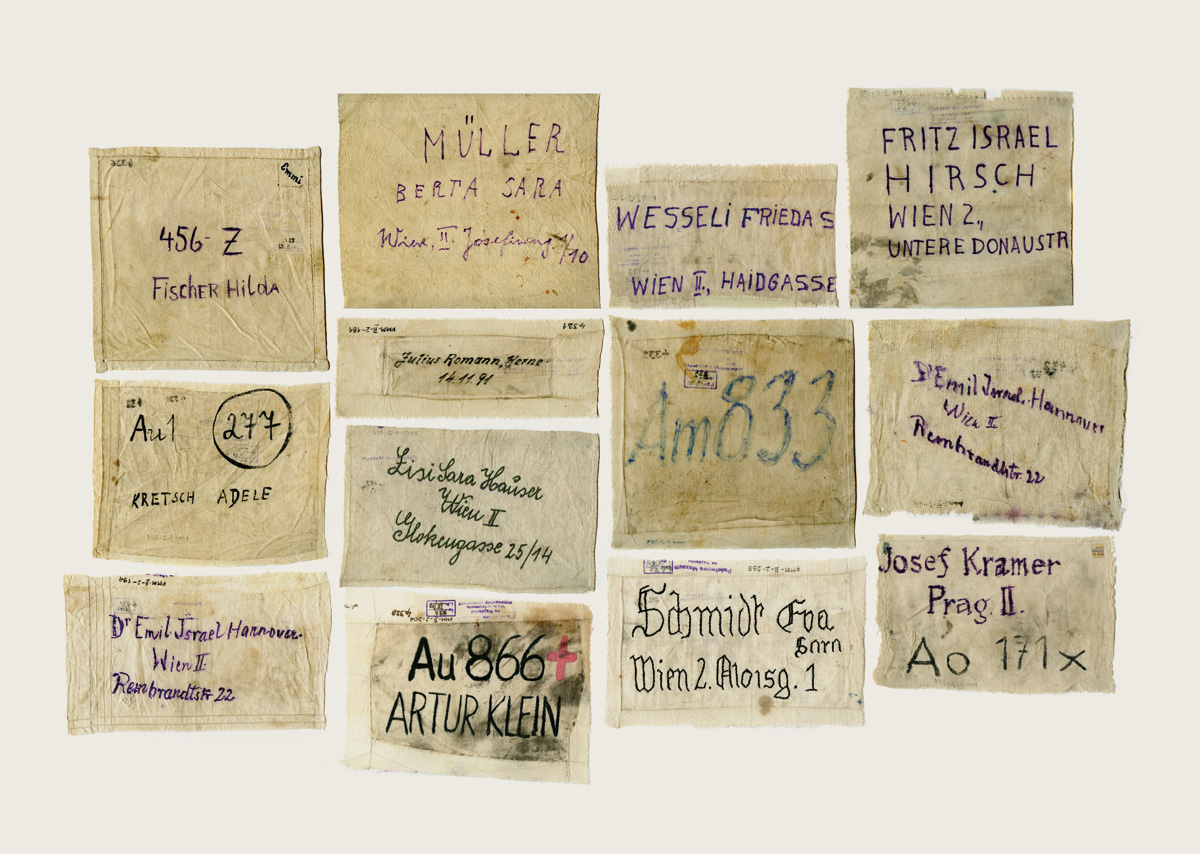 4326
Emmi
456- Z
Fischer Hilda
MÜLLER
BERTA SARA
Wien, II. Josefineng. 1/10
WESSELI FRIEDA S
WIEN II., HAIDGASSE
FRITZ ISRAEL
HIRSCH
WIEN 2.,
UNTERE DONAUSTR
Au1 277
KRETSCH ADELE
4321
Julius Romann, Herne
14.11.91
Lisi Sara Häuser
Wien II
Glokengasse 25/14
Am 833
Dr Emil Israel Hannover
Wien II
Rembrandtstr. 22
Dr Emil Israel Hannover.
Wien II
Rembrandtstr. 22
4328
Au 866+
ARTUR KLEIN
Schmidt Eva
Sara
Wien 2. Aloisg. 1
Josef Kramer
Prag. II.
Ao 171x